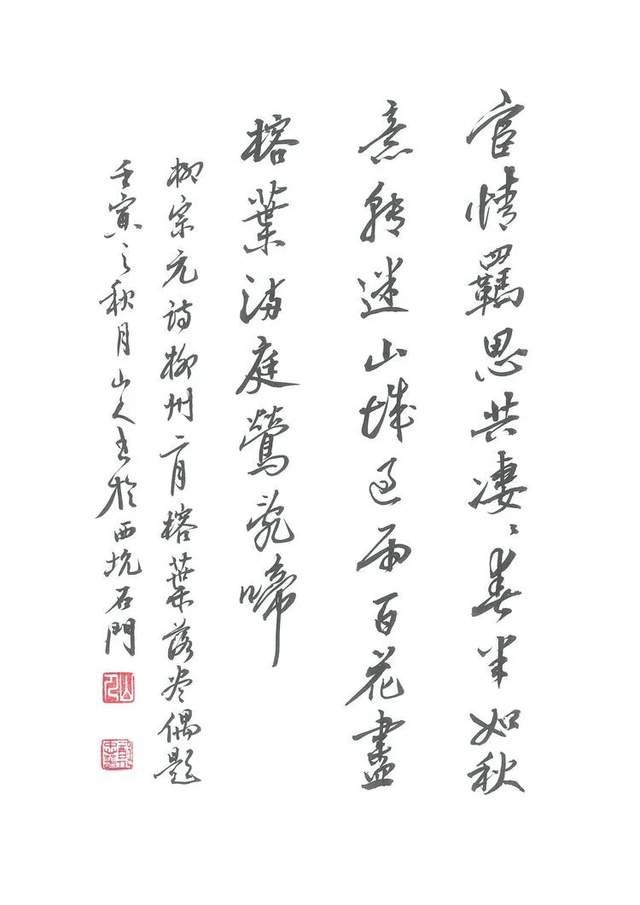 宦情羈思共凄〻春半如秋
意轉迷山城過雨百花盡
榕葉滿庭鶯亂啼
柳宗元詩柳州二月榕葉落尽偶題
壬寅之秋月山人書於西坑石門
山人